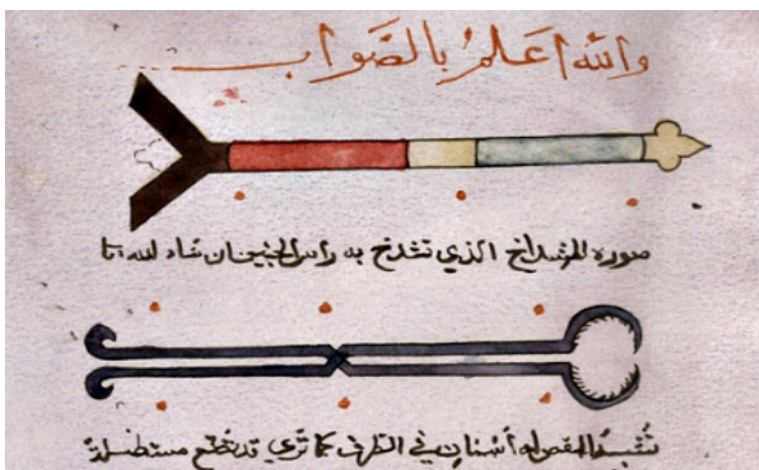 والله اَعلمُ بالصَّواب
صورة المشداخ الذي تشدخ به راس الجنين ان شاء لله
تُشبهُ المقص له أسنان في الطرف كما تري قد تصنع مستطيلة